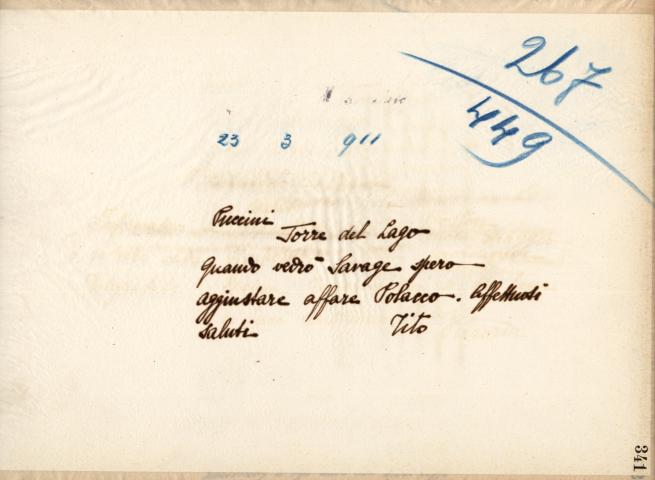 267
449
23 3 911
Puccini
Torre del Lago
Quando vedrò Savage spero
aggiustare affare Polacco. Affettuosi
saluti Tito
341